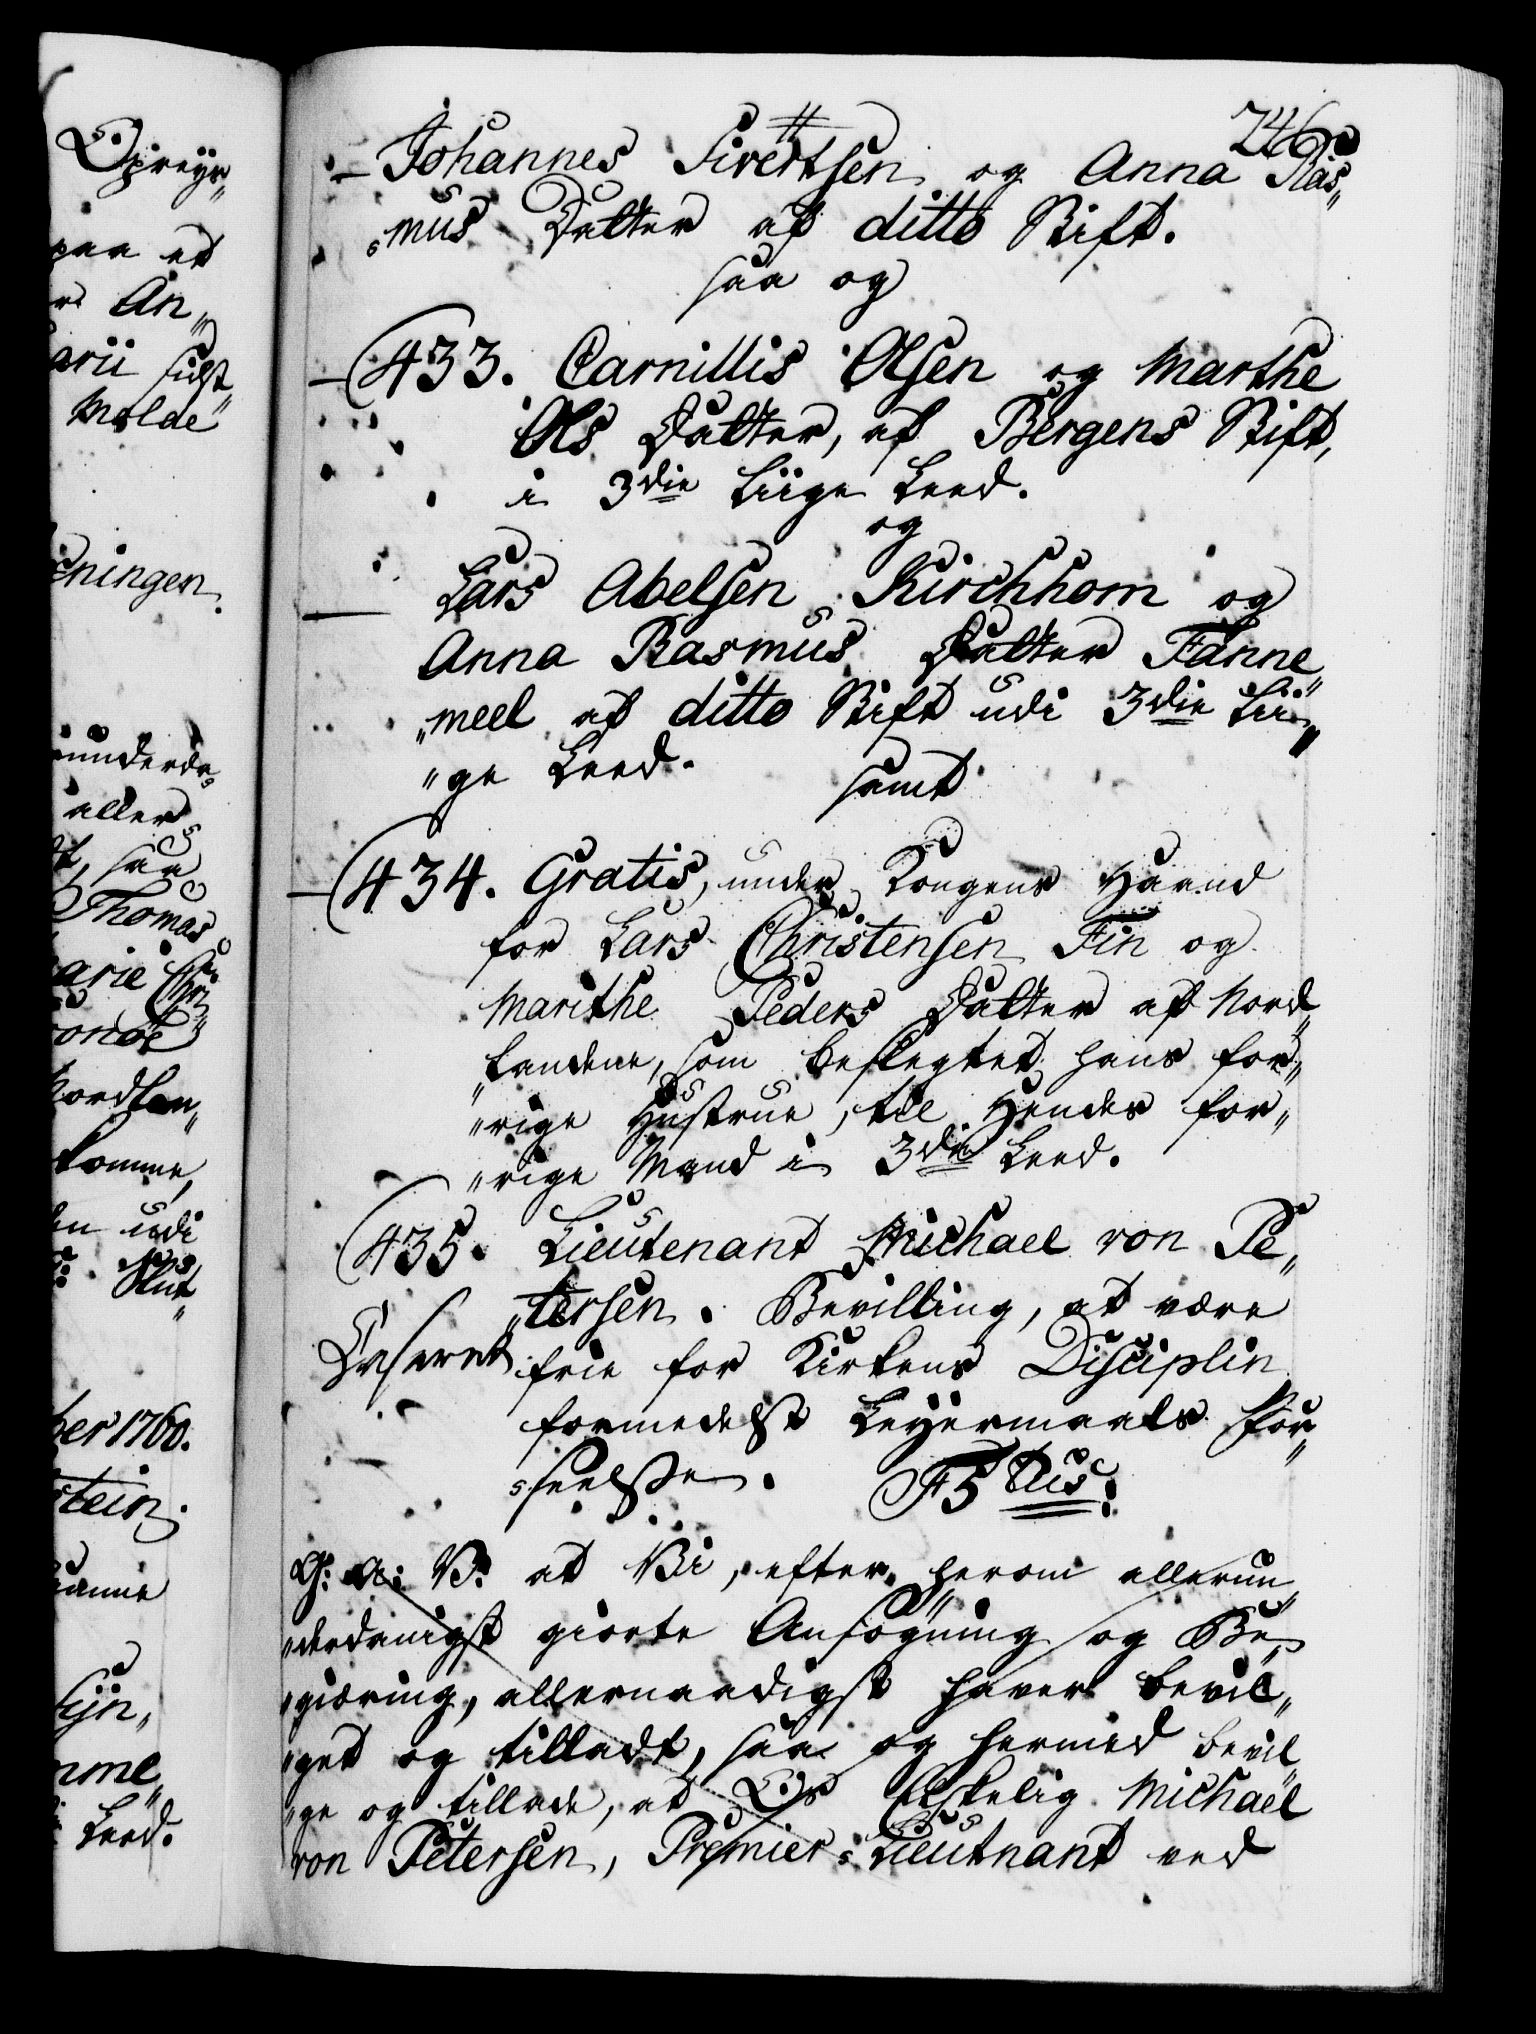 Opreys„
paa et
An„
arii sidst
Molde
eningen.
underda„
aller„
saa
Thomas
arie Chri„
Nordlan„
komme,
udi
ber 1760.
stein.
Leed.
246
Johannes Sivertsen og Anna Ras„
„mus Datter af ditto Stift.
saa og
433. Carnillis Olsen og Marthe
Ols Datter, af Bergens Stift,
i 3die Liige Leed.
og
Lars Abelsen Kirchhom og
Anna Rasmus Datter Fanne„
„meel af ditto Stift udi 3die Lii„
„ge Leed.
samt
434. Gratis, under Kongens Haand
for Lars Christensen Fin og
Marithe Peders Datter af Nord„
„landene, som beslegtet hans for„
„rige Hustrue, til Hendes for„
„rige Mand i 3die Leed.
435. Lieutenant Michael von Pe„
„tersen. Bevilling, at være
Casseret frie for Kirkens Disciplin
formedelst Leyermaals For„
„seelse. F5tus:
G: A: V: at Vi, efter herom allerun„
„derdanigst giorte Ansøgning og Be„
„giæring, allernaadigst haver bevil„
„get og tilladt, saa og hermed bevil„
„ge og tillade, at Os Elskelig Michael
von Petersen, Premier-Lieutnant ved